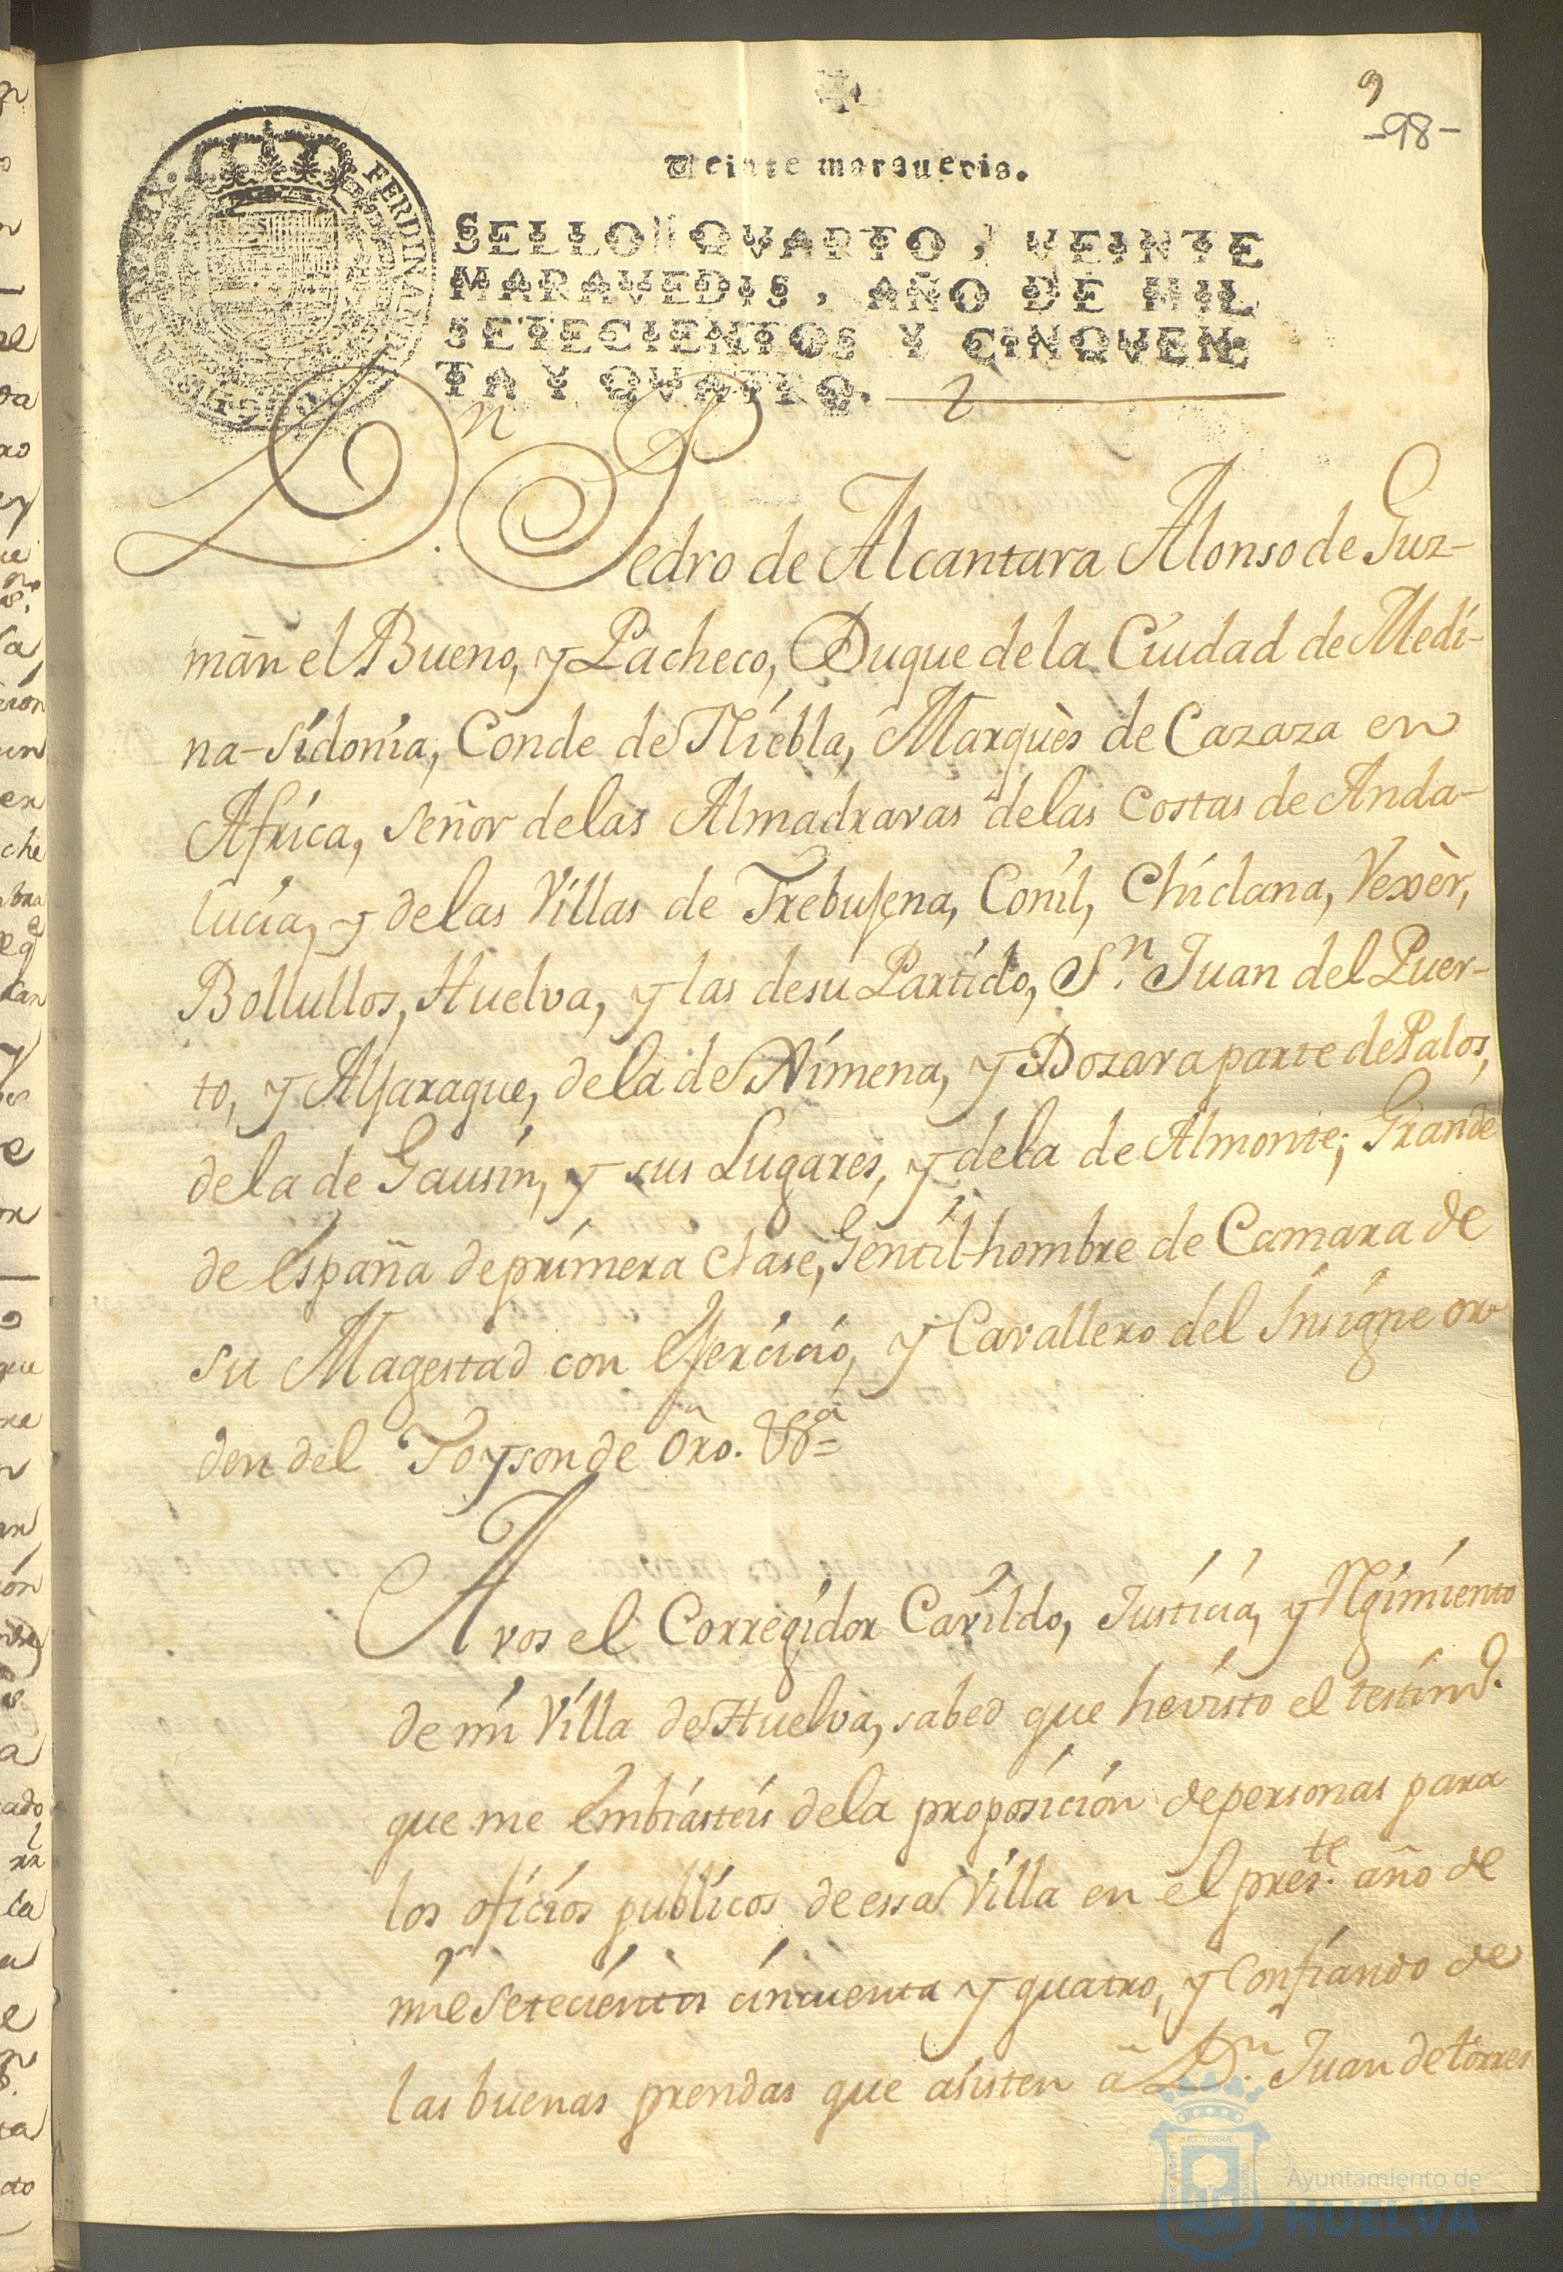 9
-98-
Veinte marauedis.
SELLO QVARTO, VEINTE
MARAVEDIS, AÑO DE MIL
SETECIENTOS Y CINQVEN-
TA Y QVATRO.
Dn. Pedro de Alcantara Alonso de Guz-
mãn el Bueno, y Pacheco, Duque de la Ciudad de Medi-
na-Sidonia, Conde de Niebla, Marquès de Cazaza en
Africa, Señor de las Almadravas de las Costas de Anda-
lucia, y de las Villas de Trebujena, Conil, Chiclana, Vexèr,
Bollullos, Huelva, y las de su Partido, Sn. Juan del Puer-
to, y Aljaraque, de la de Ximena, y Dozava parte de Palos,
de la de Gausin, y sus Lugares, y de la de Almonte; Grande
de España de primera Clase, Gentil-hombre de Camara de
su Magestad con Exercicio, y Cavallero del Insigne Or
den del Toyson de Oro. Va
A vos el Corregidor Cavildo, Justicia, y Rgimiento
de mi Villa de Huelva, sabed que he visto el testimo.
que me embiasteis de la proposición de personas para
los oficios publicos de essa Villa en el preste. año de
mil setecientos cincuenta y quatro, y Confiando de
las buenas prendas que asisten à Dn. Juan de torres
Ayuntamiento de
HUELVA